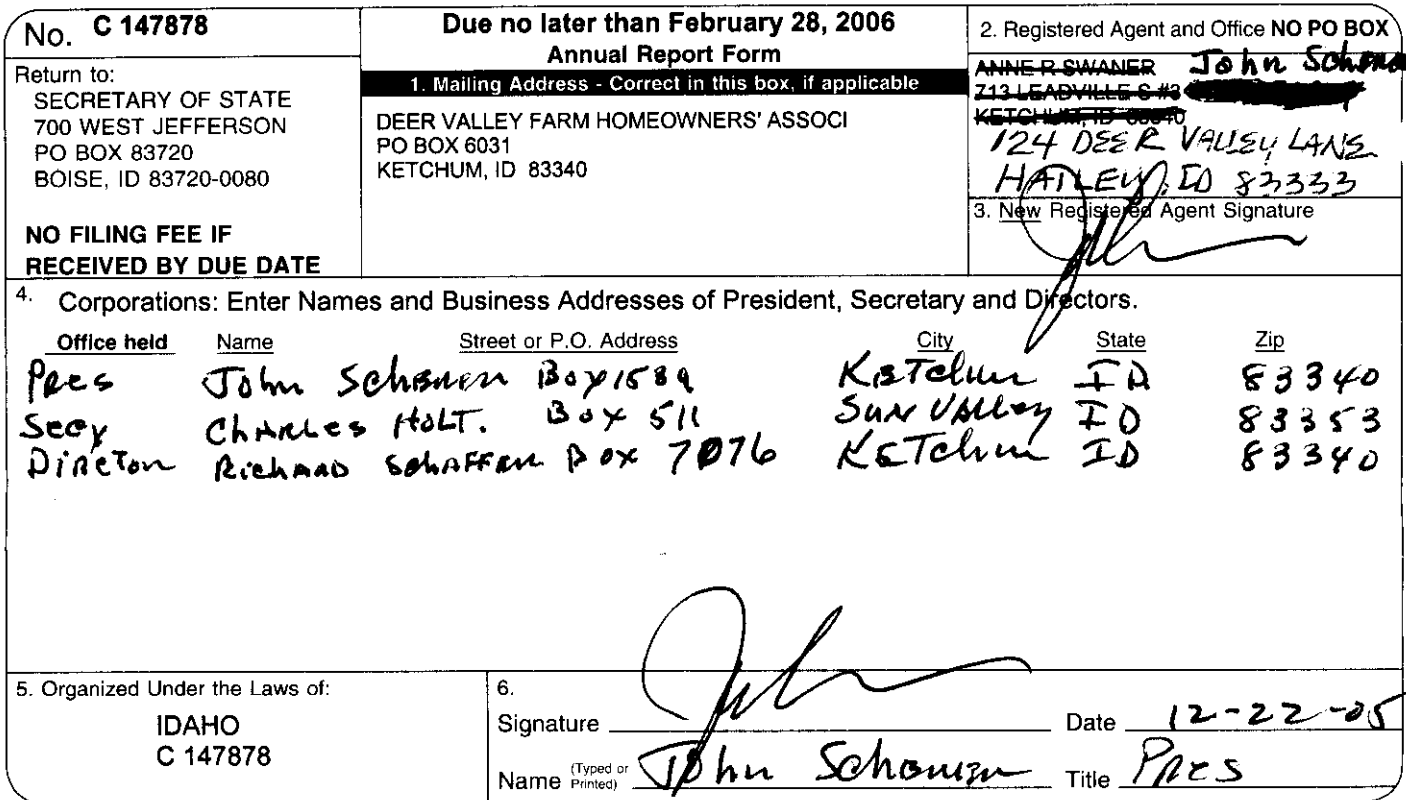 No. C 147878
Return to:
SECRETARY OF STATE
700 WEST JEFFERSON
PO BOX 83720
BOISE, ID 83720-0080
NO FILING FEE IF
RECEIVED BY DUE DATE
Due no later than February 28, 2006
Annual Report Form
1. Mailing Address - Correct in this box, if applicable
DEER VALLEY FARM HOMEOWNERS' ASSOCI
PO BOX 6031
KETCHUM, ID 83340
2. Registered Agent and Office NO PO BOX
ANNE R SWANER John
713 LEADVILLE S #3
KETCHUM, ID 83340
124 DEER VALLEY LANE
HAILEY, ID 83333
3. New Registered Agent Signature
4. Corporations: Enter Names and Business Addresses of President, Secretary and Directors.
Office held Name Street or P.O. Address City State Zip
Pres John Box 1589 Ketchum ID 83340
Secy Charles Holt. Box 511 Sun Valley ID 83353
Director Richard Schaffer Box 7076 Ketchum ID 83340
5. Organized Under the Laws of:
IDAHO
C 147878
6.
Signature Date 12-22-05
Name (Typed or Printed) John Title Pres